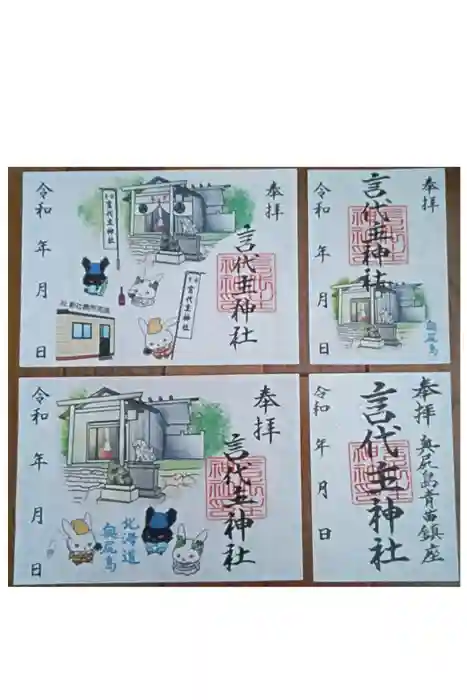 奉拝
言代主神社
言代主神社
言代主神社
令和 年 月 日
奉拝
言代主神社
奥尻島
令和 年 月 日
奉拝
言代主神社
北海道
奥尻島
令和 年 月 日
奉拝 奥尻島青苗鎮座
言代主神社
令和 年 月 日